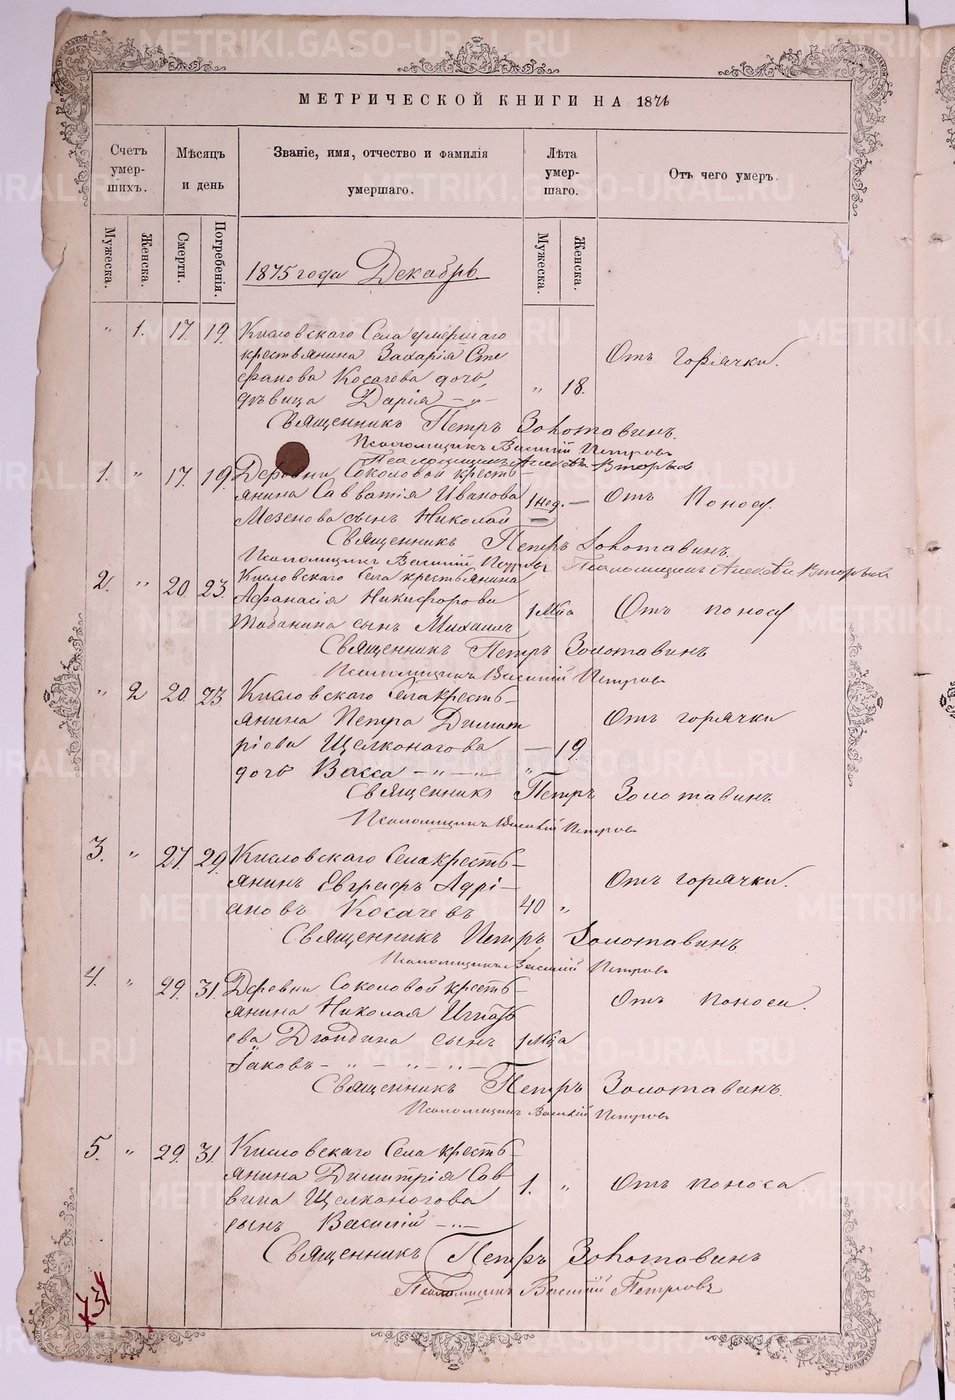 МЕТРИЧЕСКОЙ КНИГИ НА 1876
Счетъ умер-шихъ.
Мѣсяцъ и день
Званіе, имя, отчество и фамилія умершаго.
Лѣта умер-шаго.
Отъ чего умеръ.
Мужеска. Женска. Смерти. Погребенія. Мужеска. Женска.
1875 года Декабрь.
" 1. 17. 19. Кисловскаго Села умершаго
крестьянина Захарія Сте
фанова Косачева дочь, Отъ горячки.
дѣвица Дарія " 18.
Священникъ Петръ Золотавинъ.
Псаломщикъ Василій Петровъ
Псаломщикъ Алексѣй
1. " 17. 19. Деревни Соколовой кресть-
янина Савватія Иванова 1 нед. — Отъ Поноса.
Мезенова сынъ Николай
Священникъ Петръ Золотавинъ.
Псаломщикъ Василій Петровъ Псаломщикъ Алексѣй
2. " 20 23 Кисловскаго Села крестьянина
Афанасія Никифорова 1 м-ца Отъ поноса
Табанина сынъ Михаилъ
Священникъ Петръ Золотавинъ
Псаломщикъ Василій Петровъ
" 2 20. 23 Кисловскаго Села кресть-
янина Петра Димит Отъ горячки
ріева Щелконогова — 19.
дочь Васса
Священникъ Петръ Золотавинъ.
Псаломщикъ Василій Петровъ
3. " 27. 29. Кисловскаго Села кресть-
янинъ Евграфъ Адрі- Отъ горячки.
ановъ Косачевъ 40 "
Священникъ Петръ Золотавинъ
Псаломщикъ Василій Петровъ
4. " 29. 31. Деревни Соколовой кресть-
янина Николая Игнать Отъ поноса.
ева Дюндина сынъ 1 м-ца
Іаковъ
Священникъ Петръ Золотавинъ.
Псаломщикъ Василій Петровъ
5. " 29. 31. Кисловскаго Села кресть-
янина Димитрія Сав
вина Щелконогова 1. " Отъ поноса
сынъ Василій
Священникъ Петръ Золотавинъ
Псаломщикъ Василій Петровъ
METRIKI.GASO-URAL.RU